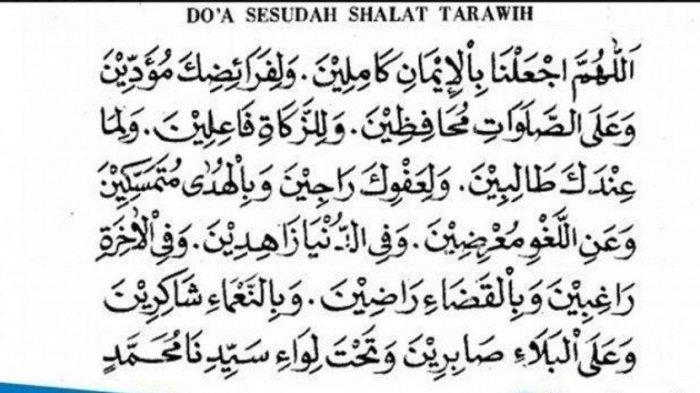 DO'A SESUDAH SHALAT TARAWIH
اَللّٰهُمَّ اجْعَلْنَا بِالْإِيْمَانِ كَامِلِيْنَ. وَلِفَرَائِضِكَ مُؤَدِّيْنَ
وَعَلَى الصَّلَوَاتِ مُحَافِظِيْنَ. وَلِلزَّكَاةِ فَاعِلِيْنَ. وَلِمَا
عِنْدَكَ طَالِبِيْنَ. وَلِعَفْوِكَ رَاجِيْنَ وَبِالْهُدٰى مُتَمَسِّكِيْنَ
وَعَنِ اللَّغْوِ مُعْرِضِيْنَ. وَفِى الدُّنْيَا زَاهِدِيْنَ. وَفِى الْاٰخِرَةِ
رَاغِبِيْنَ وَبِالْقَضَاءِ رَاضِيْنَ. وَبِالنَّعْمَاءِ شَاكِرِيْنَ
وَعَلَى الْبَلَاءِ صَابِرِيْنَ وَتَحْتَ لِوَاءِ سَيِّدِنَا مُحَمَّدٍ